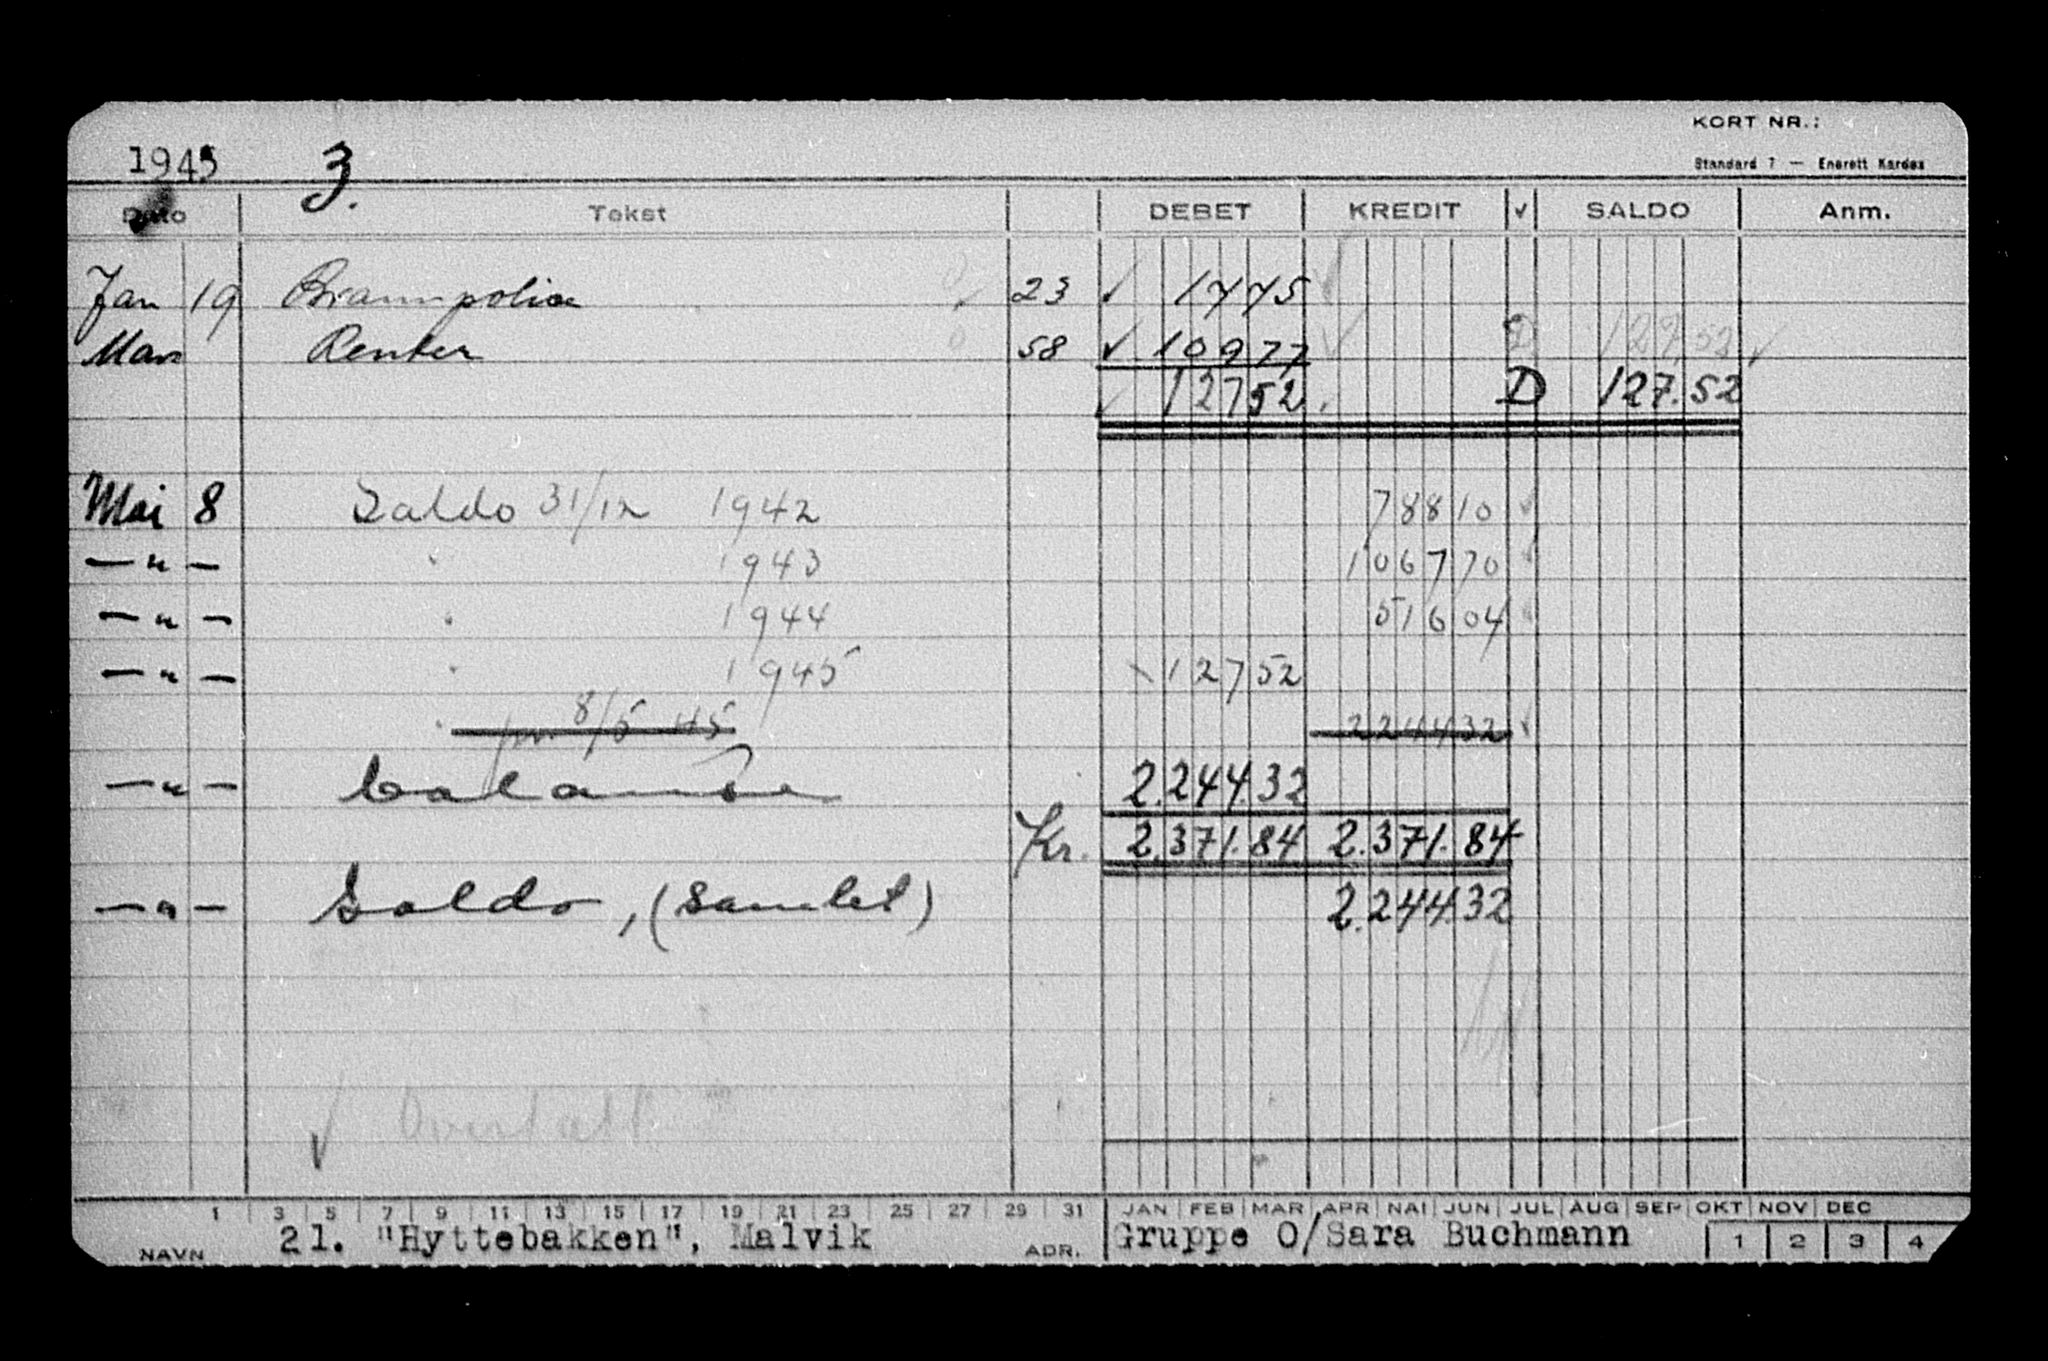 KORT NR.:
1945 3.
Standard 7 — Enerett Kardex
Dato Tekst DEBET KREDIT √ SALDO Anm.
Jan 19 Brannpolise 23 ✓ 1775 ✓
Mars Renter 58 ✓ 10977 ✓ D 127,52 ✓
✓ 12752 D 127.52
Mai 8 Saldo 31/12 1942 78810 ✓
—"— " 1943 106770 ✓
—"— " 1944 51604 ✓
—"— " 1945 12752
" pr. 8/5 45 224432 ✓
—"— balanse 2.244.32
Kr. 2.371.84 2.371.84
—"— Saldo, (samlet) 2.244.32
✓ Overført
1 3 5 7 9 11 13 15 17 19 21 23 25 27 29 31 JAN FEB MAR APR MAI JUN JUL AUG SEP OKT NOV DEC
NAVN 21. "Hyttebakken", Malvik ADR. Gruppe O/Sara Buchmann 1 2 3 4